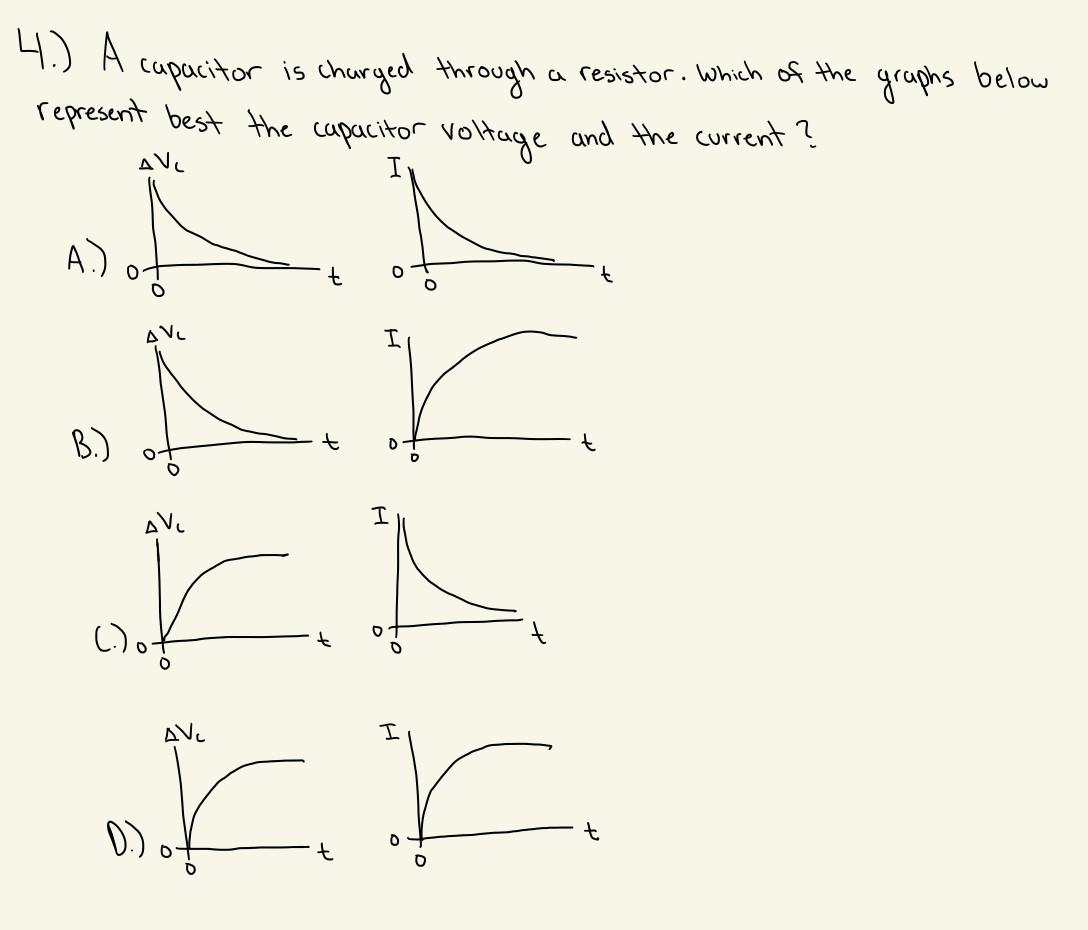 4.) A capacitor is charged through a resistor. Which of the graphs below
represent best the capacitor voltage and the current?
A.) ΔVc 0 0 t I 0 0 t
B.) ΔVc 0 0 t I 0 0 t
C.) ΔVc 0 0 t I 0 0 t
D.) ΔVc 0 0 t I 0 0 t